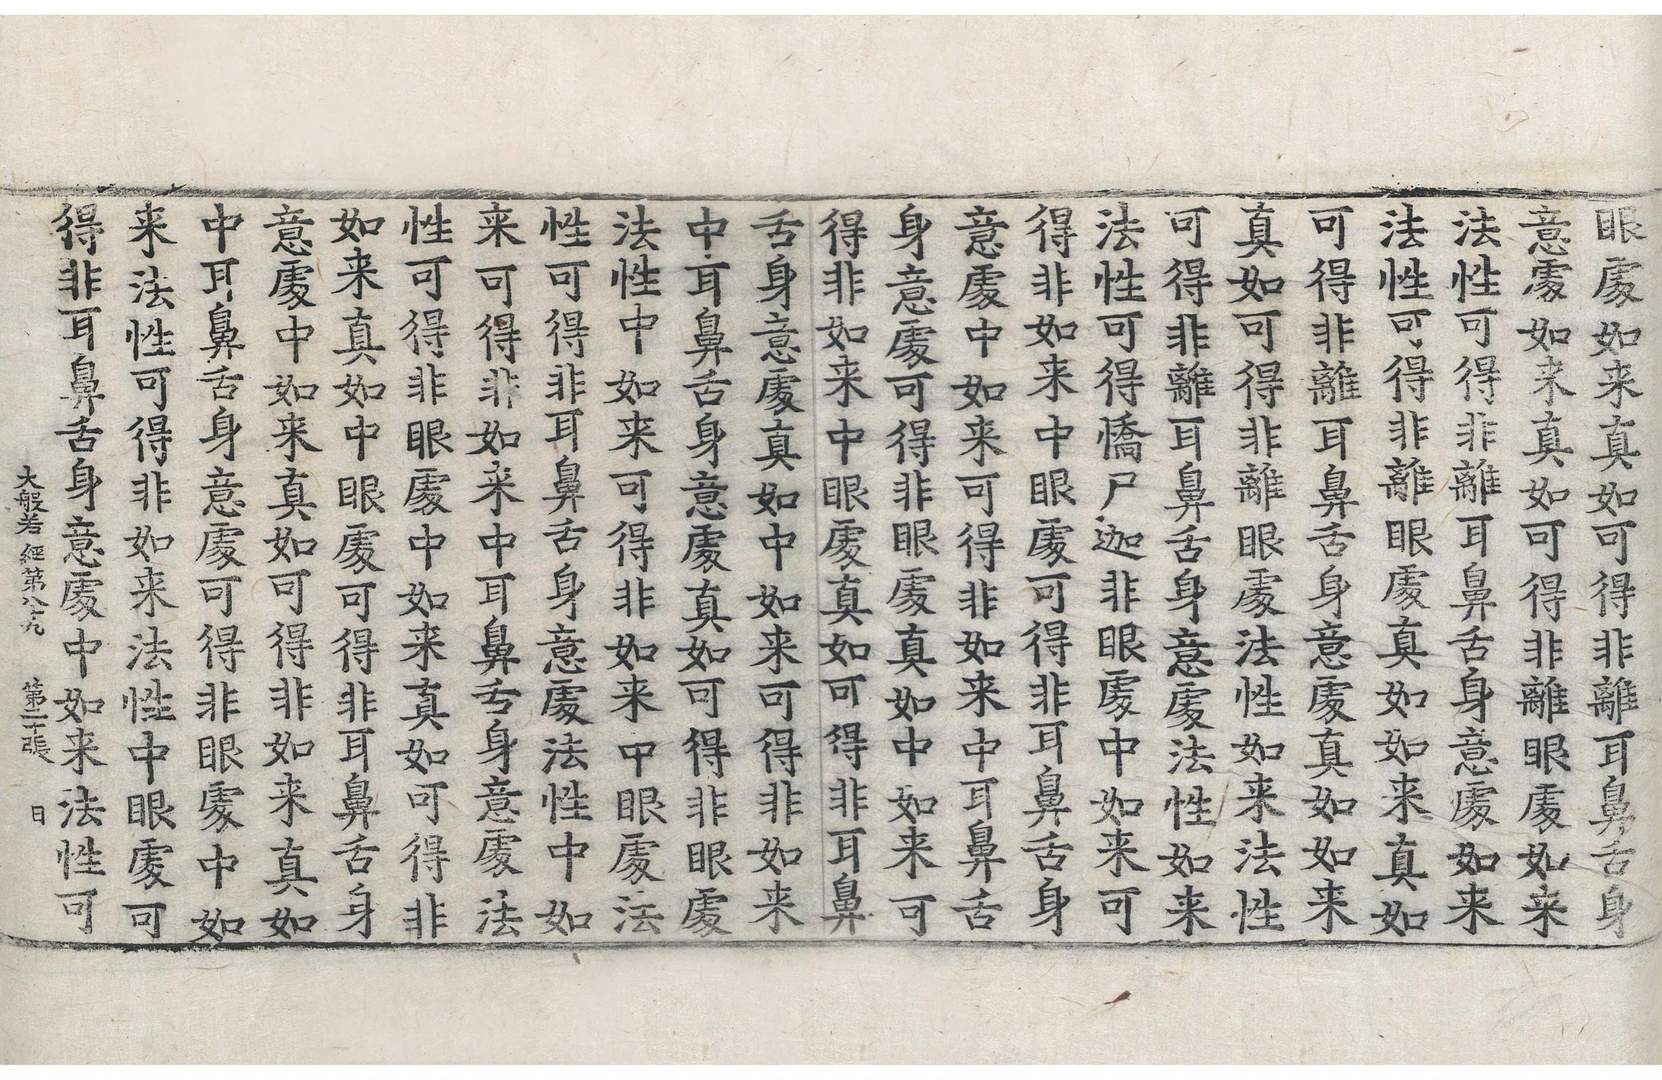 眼處如来真如可得非離耳鼻舌身
意處如来真如可得非離眼處如来
法性可得非離耳鼻舌身意處如来
法性可得非離眼處真如如来真如
可得非離耳鼻舌身意處真如如来
真如可得非離眼處法性如来法性
可得非離耳鼻舌身意處法性如来
法性可得憍尸迦非眼處中如来可
得非如来中眼處可得非耳鼻舌身
意處中如来可得非如来中耳鼻舌
身意處可得非眼處真如中如来可
得非如来中眼處真如可得非耳鼻
舌身意處真如中如来可得非如来
中耳鼻舌身意處真如可得非眼處
法性中如来可得非如来中眼處法
性可得非耳鼻舌身意處法性中如
来可得非如来中耳鼻舌身意處法
性可得非眼處中如来真如可得非
如来真如中眼處可得非耳鼻舌身
意處中如来真如可得非如来真如
中耳鼻舌身意處可得非眼處中如
来法性可得非如来法性中眼處可
得非耳鼻舌身意處中如来法性可
大般若經第八十九 第二十張 日